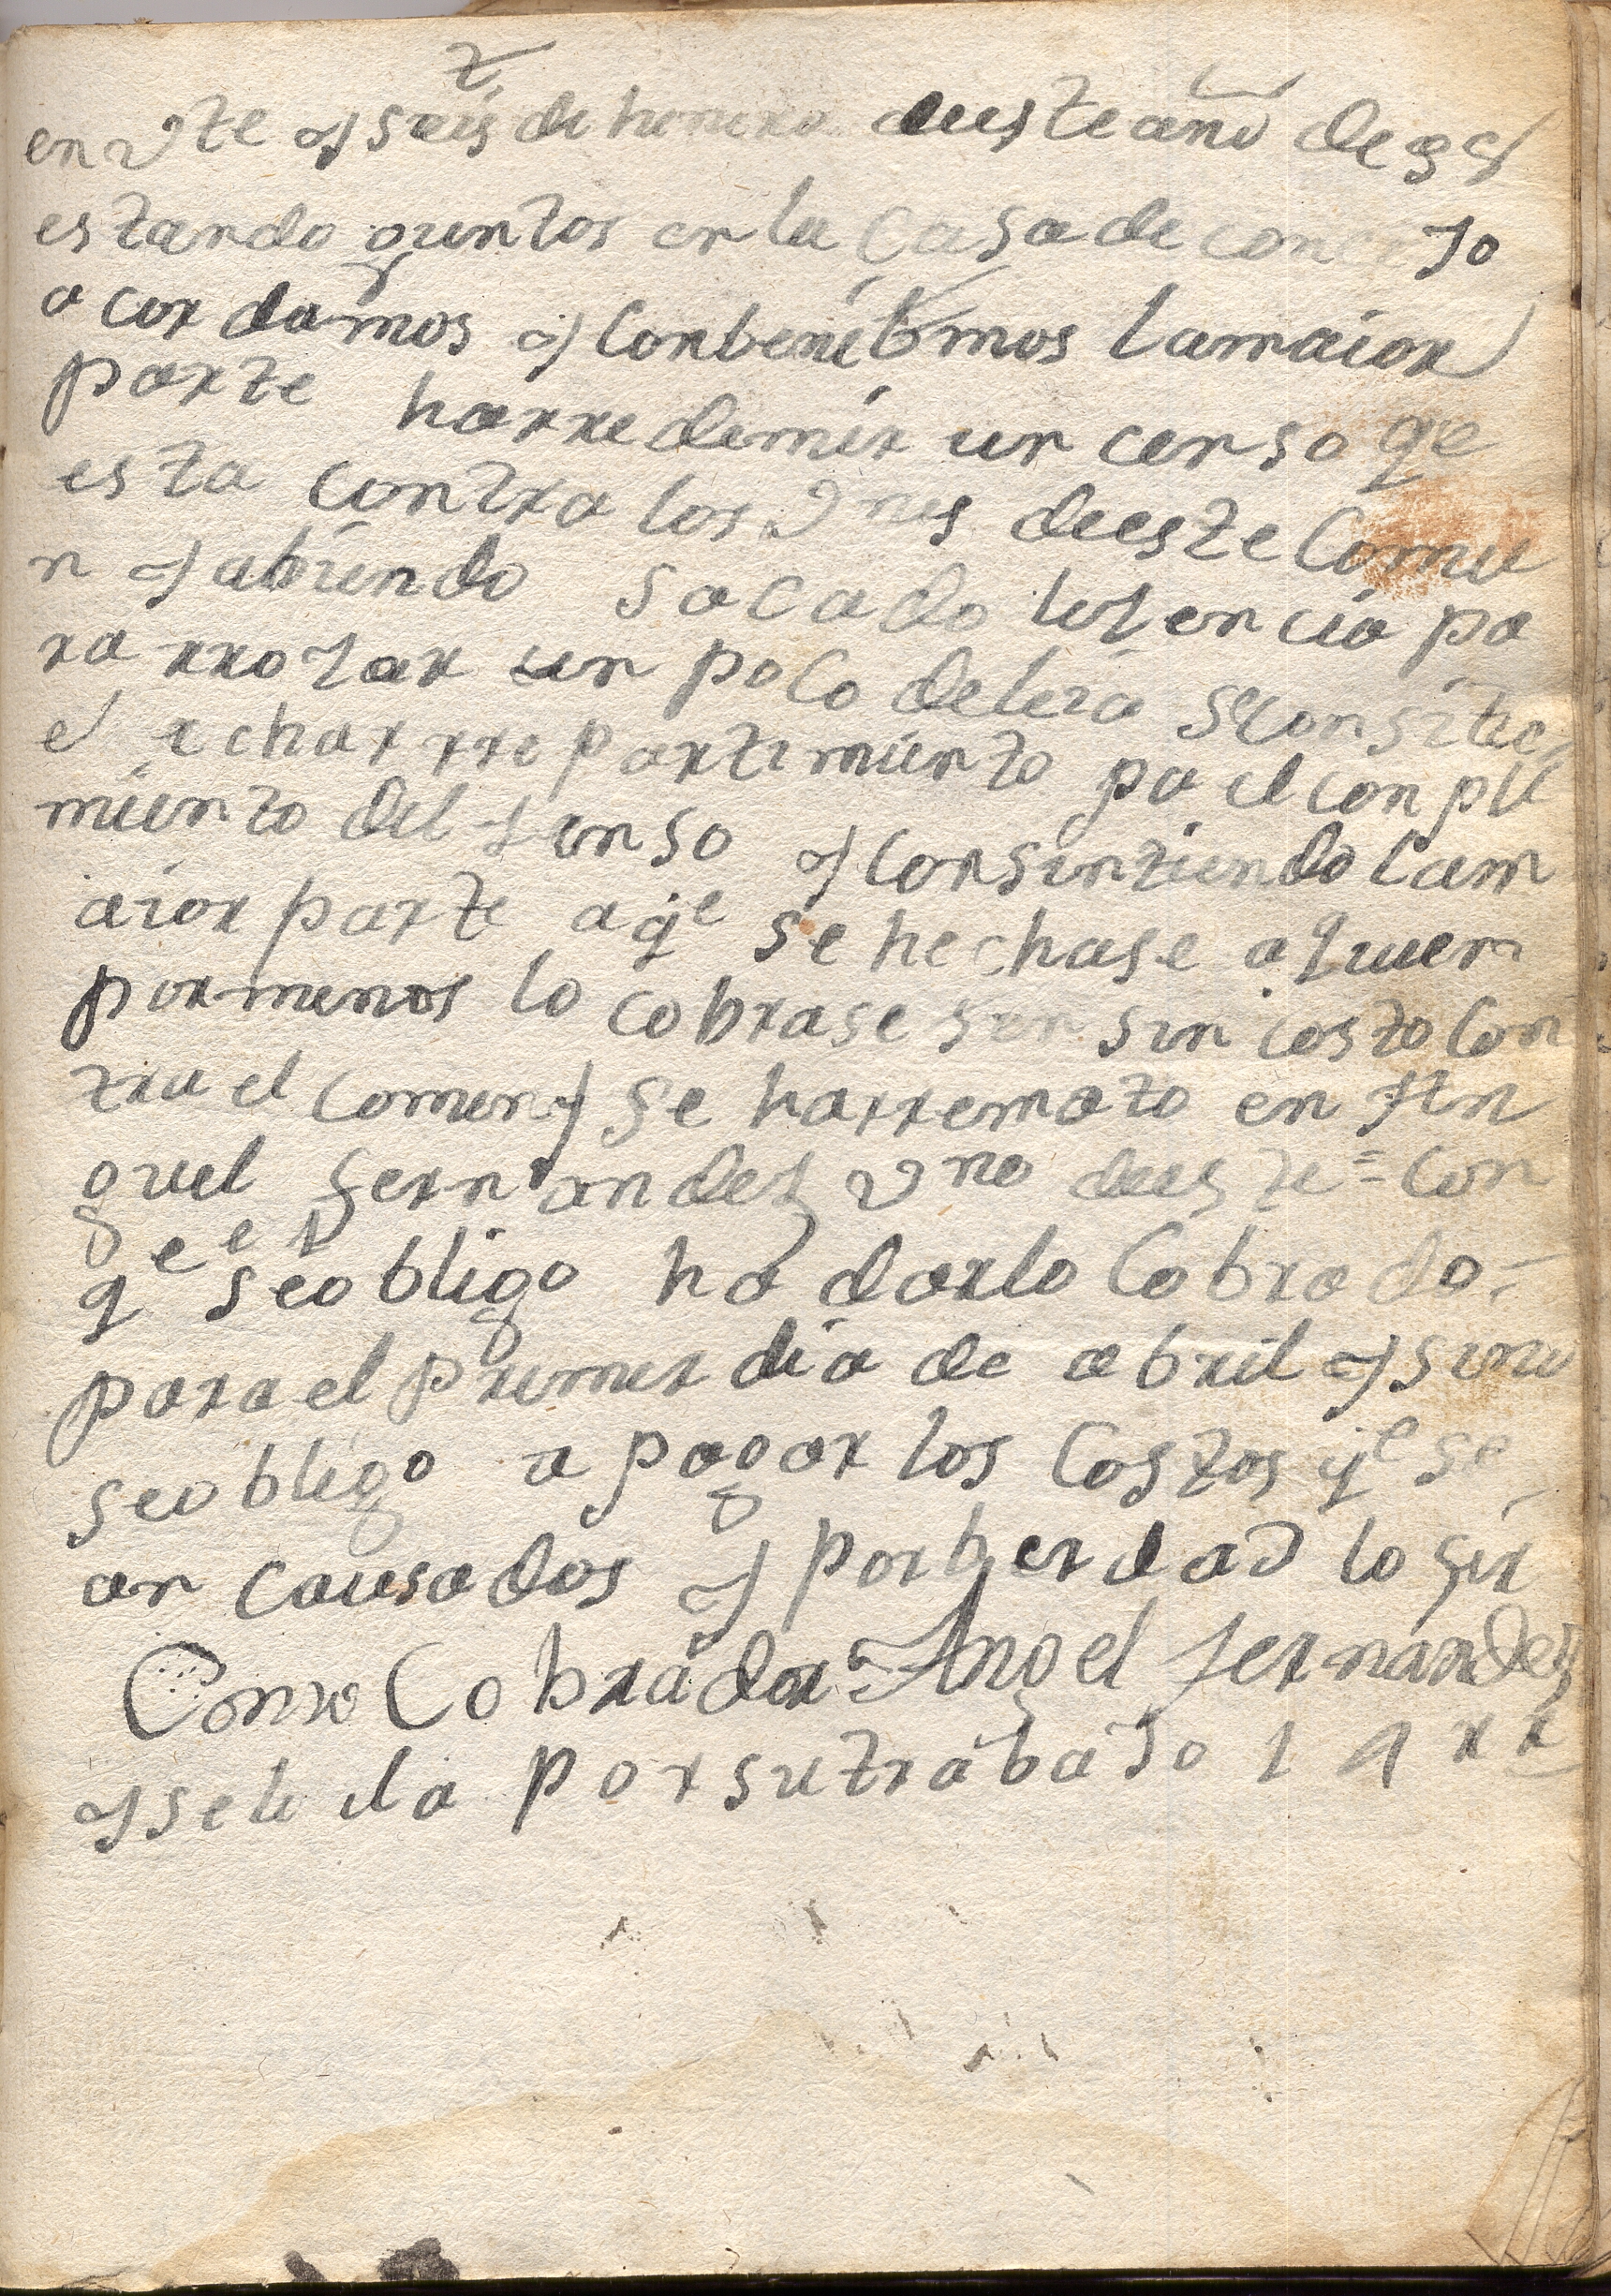 en vte y seis de henero deeste año de 98
estando guntos en la casa de concejo
acordamos y conbenibmos lamaior
parte harredemir un censo qe
esta contra los vnes deeste Comu
n y abiendo sacado lisencia pa
ra rrozar un poco deleia seconsitio
el echarrrepartimiento pa el conpli
miento del senso y consintiendo lam
aior parte a qe se hechase a quien
pormenos lo cobrase ser sin costo con
tra el comun y se harremato en An
guel fernandez vno deeste = con
qe seobligo ha darlo Cobrado =
para el primer dia de abril y sino
seobligo a pagar los Costos qe se
an causados y porberdad lo fir
Como Cobrador Angel fernandez
y sele da porsutrabajo 14 rr